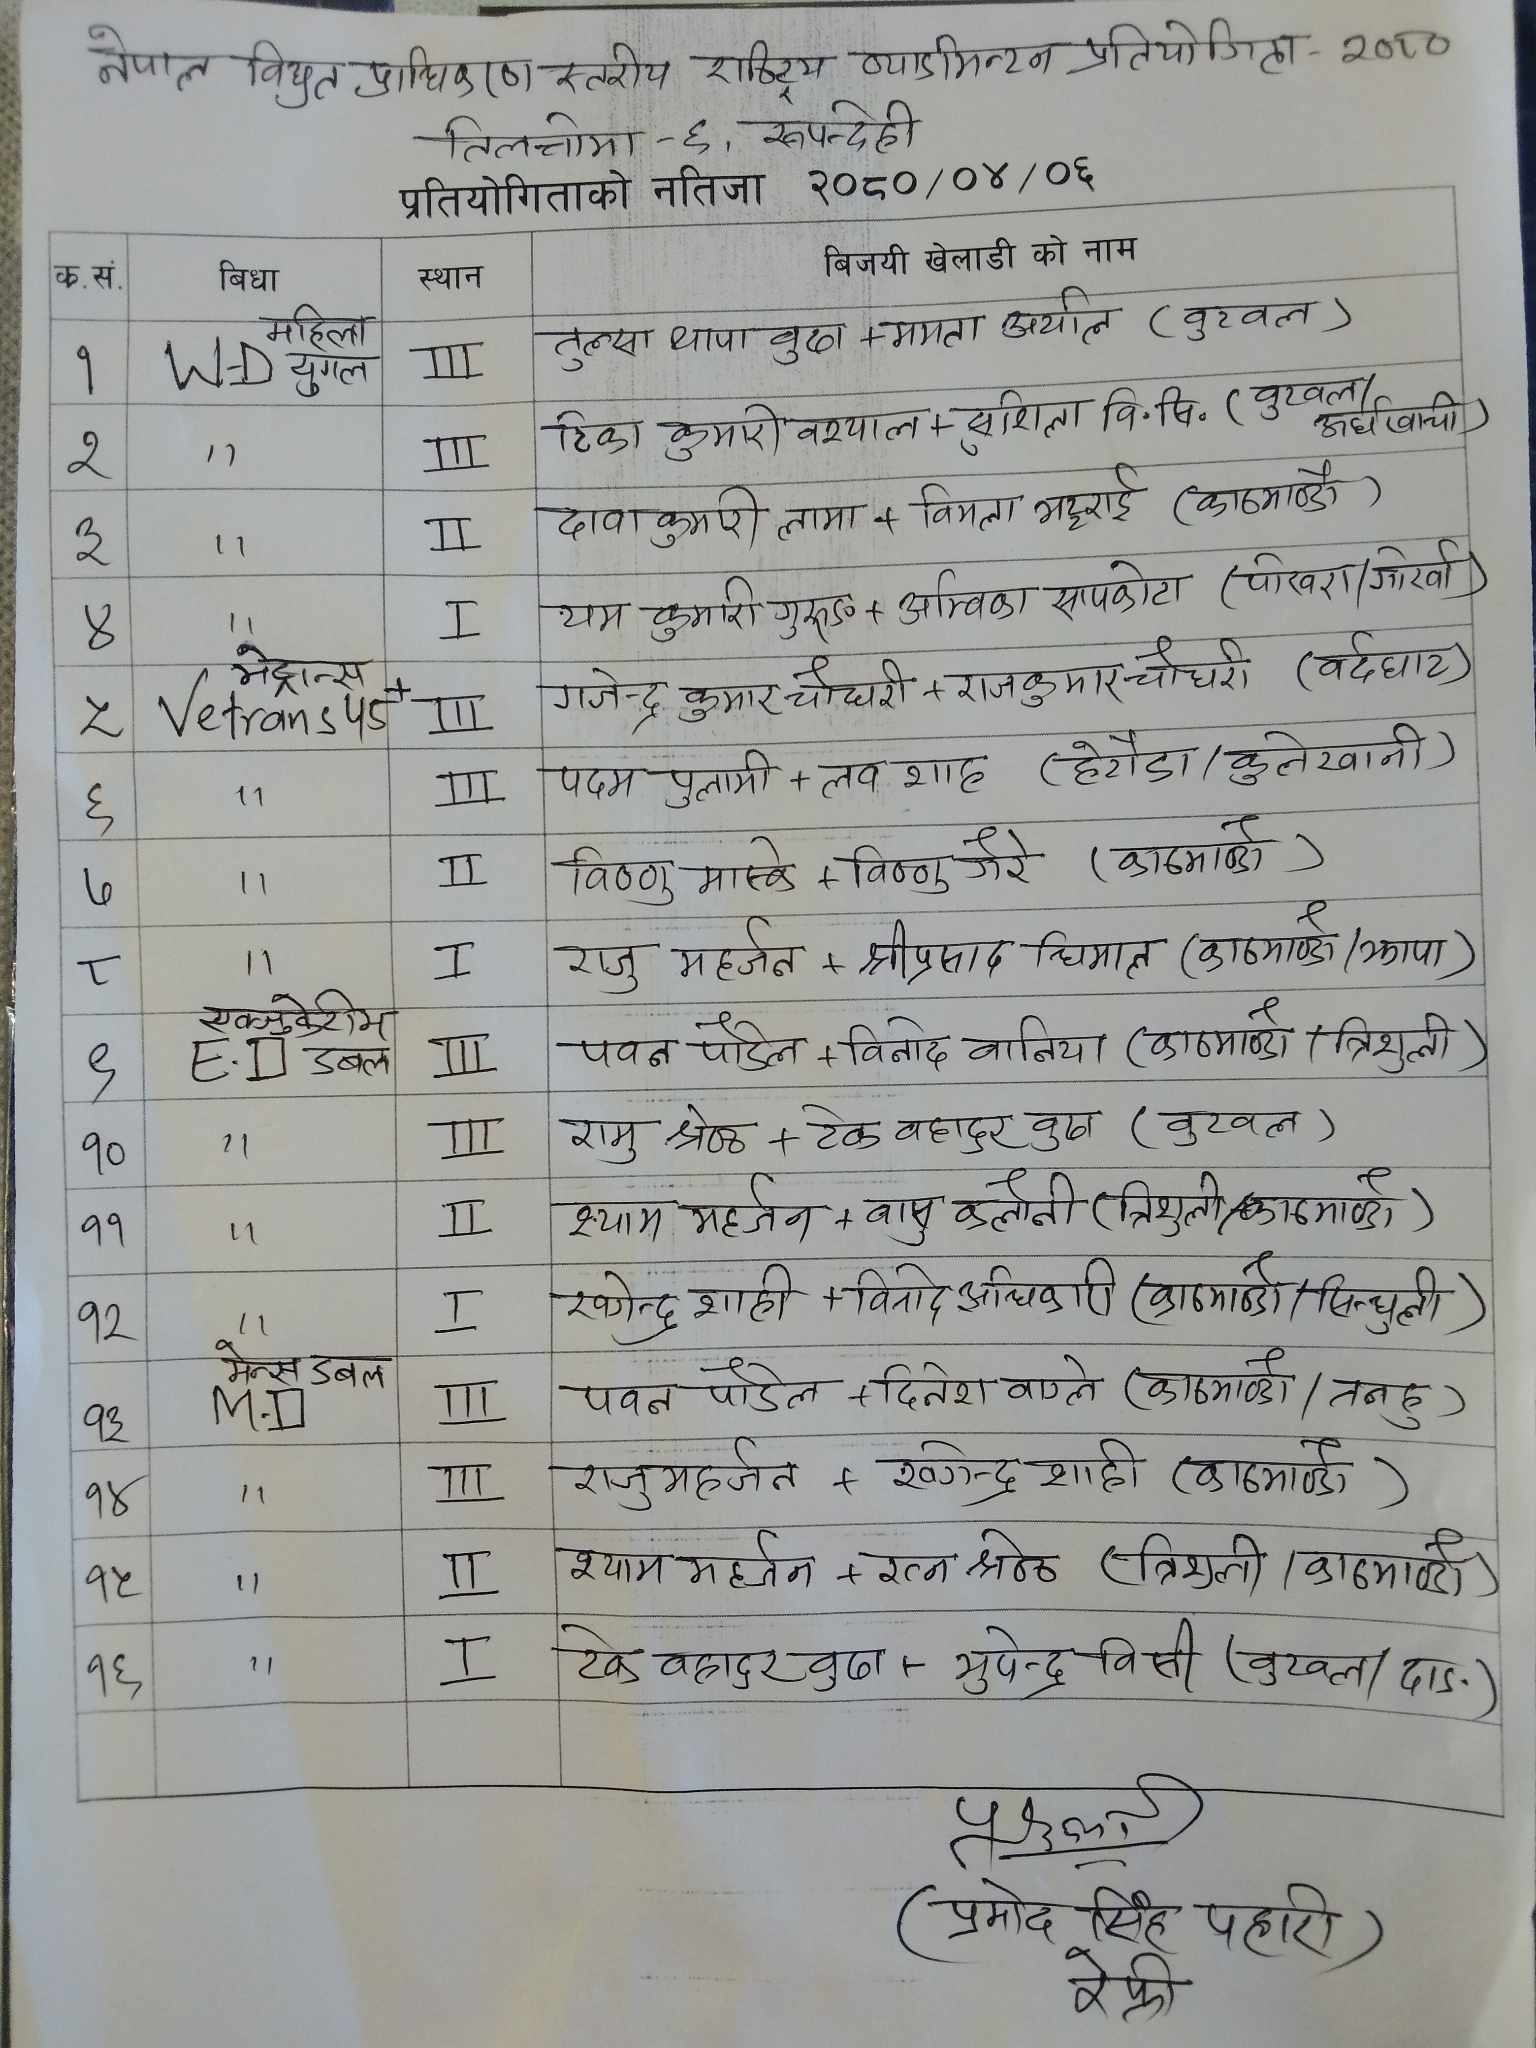 नेपाल विधुत प्राधिकरण स्तरीय राष्ट्रिय व्याडमिन्टन प्रतियोगिता - २०८०
तिलोत्तमा - ६, रूपन्देही
प्रतियोगिताको नतिजा २०८०/०४/०६
क.सं. बिधा स्थान बिजयी खेलाडी को नाम
१ W-D महिला युगल III तुल्सा थापा वुढा + ममता अर्याल (वुटवल)
२ " III टिका कुमारी वश्याल + सुशिला वि.सि. (वुटवल/अर्घाखाची)
३ " II दावा कुमारी लामा + विमला भट्टराई (काठमाण्डौ)
४ " I यम कुमारी गुरूङ + अम्विका सापकोटा (पोखरा/गोर्खा)
५ भेट्रान्स Vetrans 45+ III गजेन्द्र कुमार चौधरी + राजकुमार चौधरी (वर्दघाट)
६ " III पदम पुलामी + लव शाह (हेटौडा/कुलेखानी)
७ " II विष्णु मास्के + विष्णु जैरे (काठमाण्डौ)
८ " I राजु महर्जन + श्रीप्रसाद धिमाल (काठमाण्डौ/झापा)
९ E.D डबल III पवन पौडेल + विनोद वानिया (काठमाण्डौ/त्रिशुली)
१० " III रामु श्रेष्ठ + टेक वहादुर वुढा (वुटवल)
११ " II श्याम महर्जन + वासु कलौनी (त्रिशुली/काठमाण्डौ)
१२ " I खगेन्द्र शाही + विनोद अधिकारी (काठमाण्डौ/सिन्धुली)
१३ मेन्स डबल M.D III पवन पौडेल + दिनेश वाग्ले (काठमाण्डौ/तनहु)
१४ " III राजु महर्जन + खगेन्द्र शाही (काठमाण्डौ)
१५ " II श्याम महर्जन + रत्न श्रेष्ठ (त्रिशुली/काठमाण्डौ)
१६ " I टेक वहादुर वुढा + भुपेन्द्र विसी (वुटवल/दाङ.)
(प्रमोद सिंह पहारी)
रेफ्री